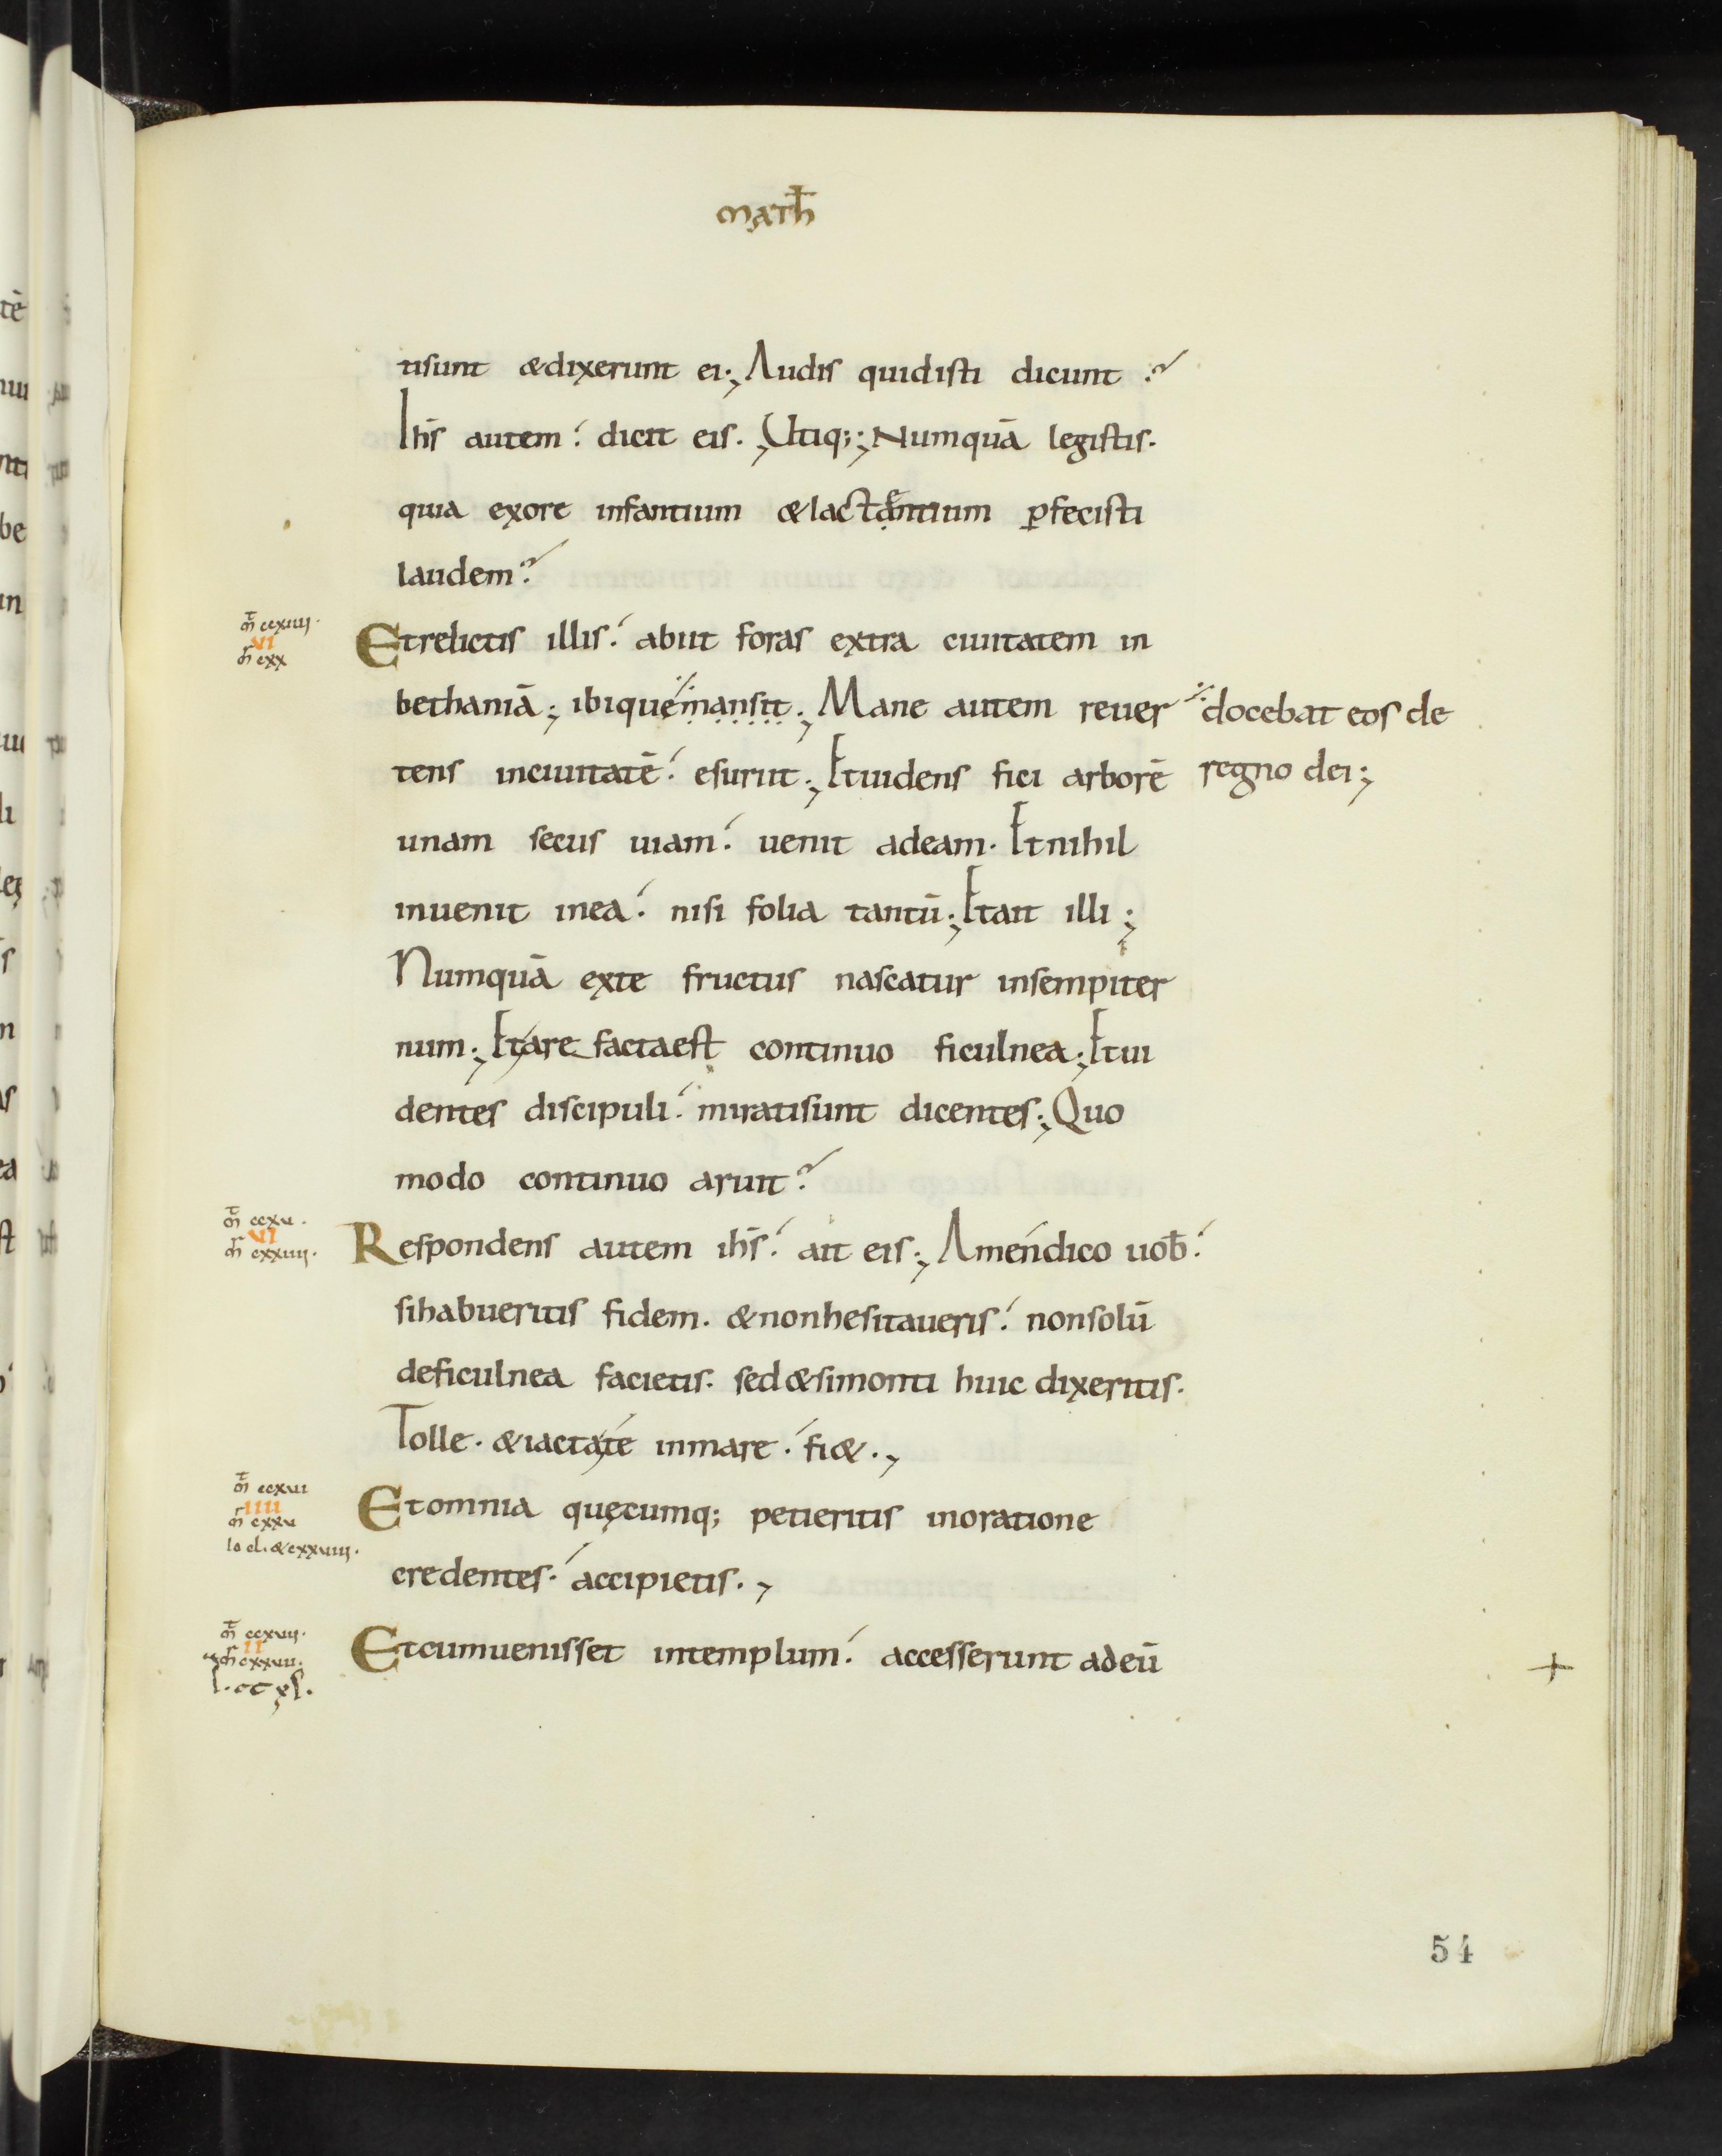 math̄
tisunt &dixerunt ei; Audis quidisti dicunt ?
Ihs̄ autem. dicit eis. Utiq;; Numquā legistis.
quia exore infantium &lactantium ꝑfecisti
laudem?
m̄ ccxiiii.
VI
mr̄ cxx
Etrelictis illis. abiit foras extra ciuitatem in
bethaniā; ibique mansit; Mane autem reuer
docebat eos de
tens inciuitatē. esuriit; Etuidens fici arborē
regno dei;
unam secus uiam. uenit adeam. Etnihil
inuenit inea. nisi folia tantū; Etait illi;
Numquā exte fructus nascatur insempiter
num; Etare factaest continuo ficulnea; Etui
dentes discipuli. miratisunt dicentes; Quo
modo continuo aruit?
m̄ ccxu.
VI
mr̄ cxxiiii.
Respondens autem ihs̄. ait eis; Amendico uob̄.
sihabueritis fidem. &nonhesitaueris. nonsolū
deficulnea facietis. sed&simonti huic dixeritis.
Tolle. &iactate inmare. fi&.,
m̄ ccxui
IIII
mr̄ cxxu
Io cl. &cxxuiii.
Etomnia quęcumq; petieritis inoratione
credentes. accipietis.,
m̄ ccxuii.
II
mr̄ cxxuii.
l. ccxl.
Etcumuenisset intemplum. accesserunt adeū
54